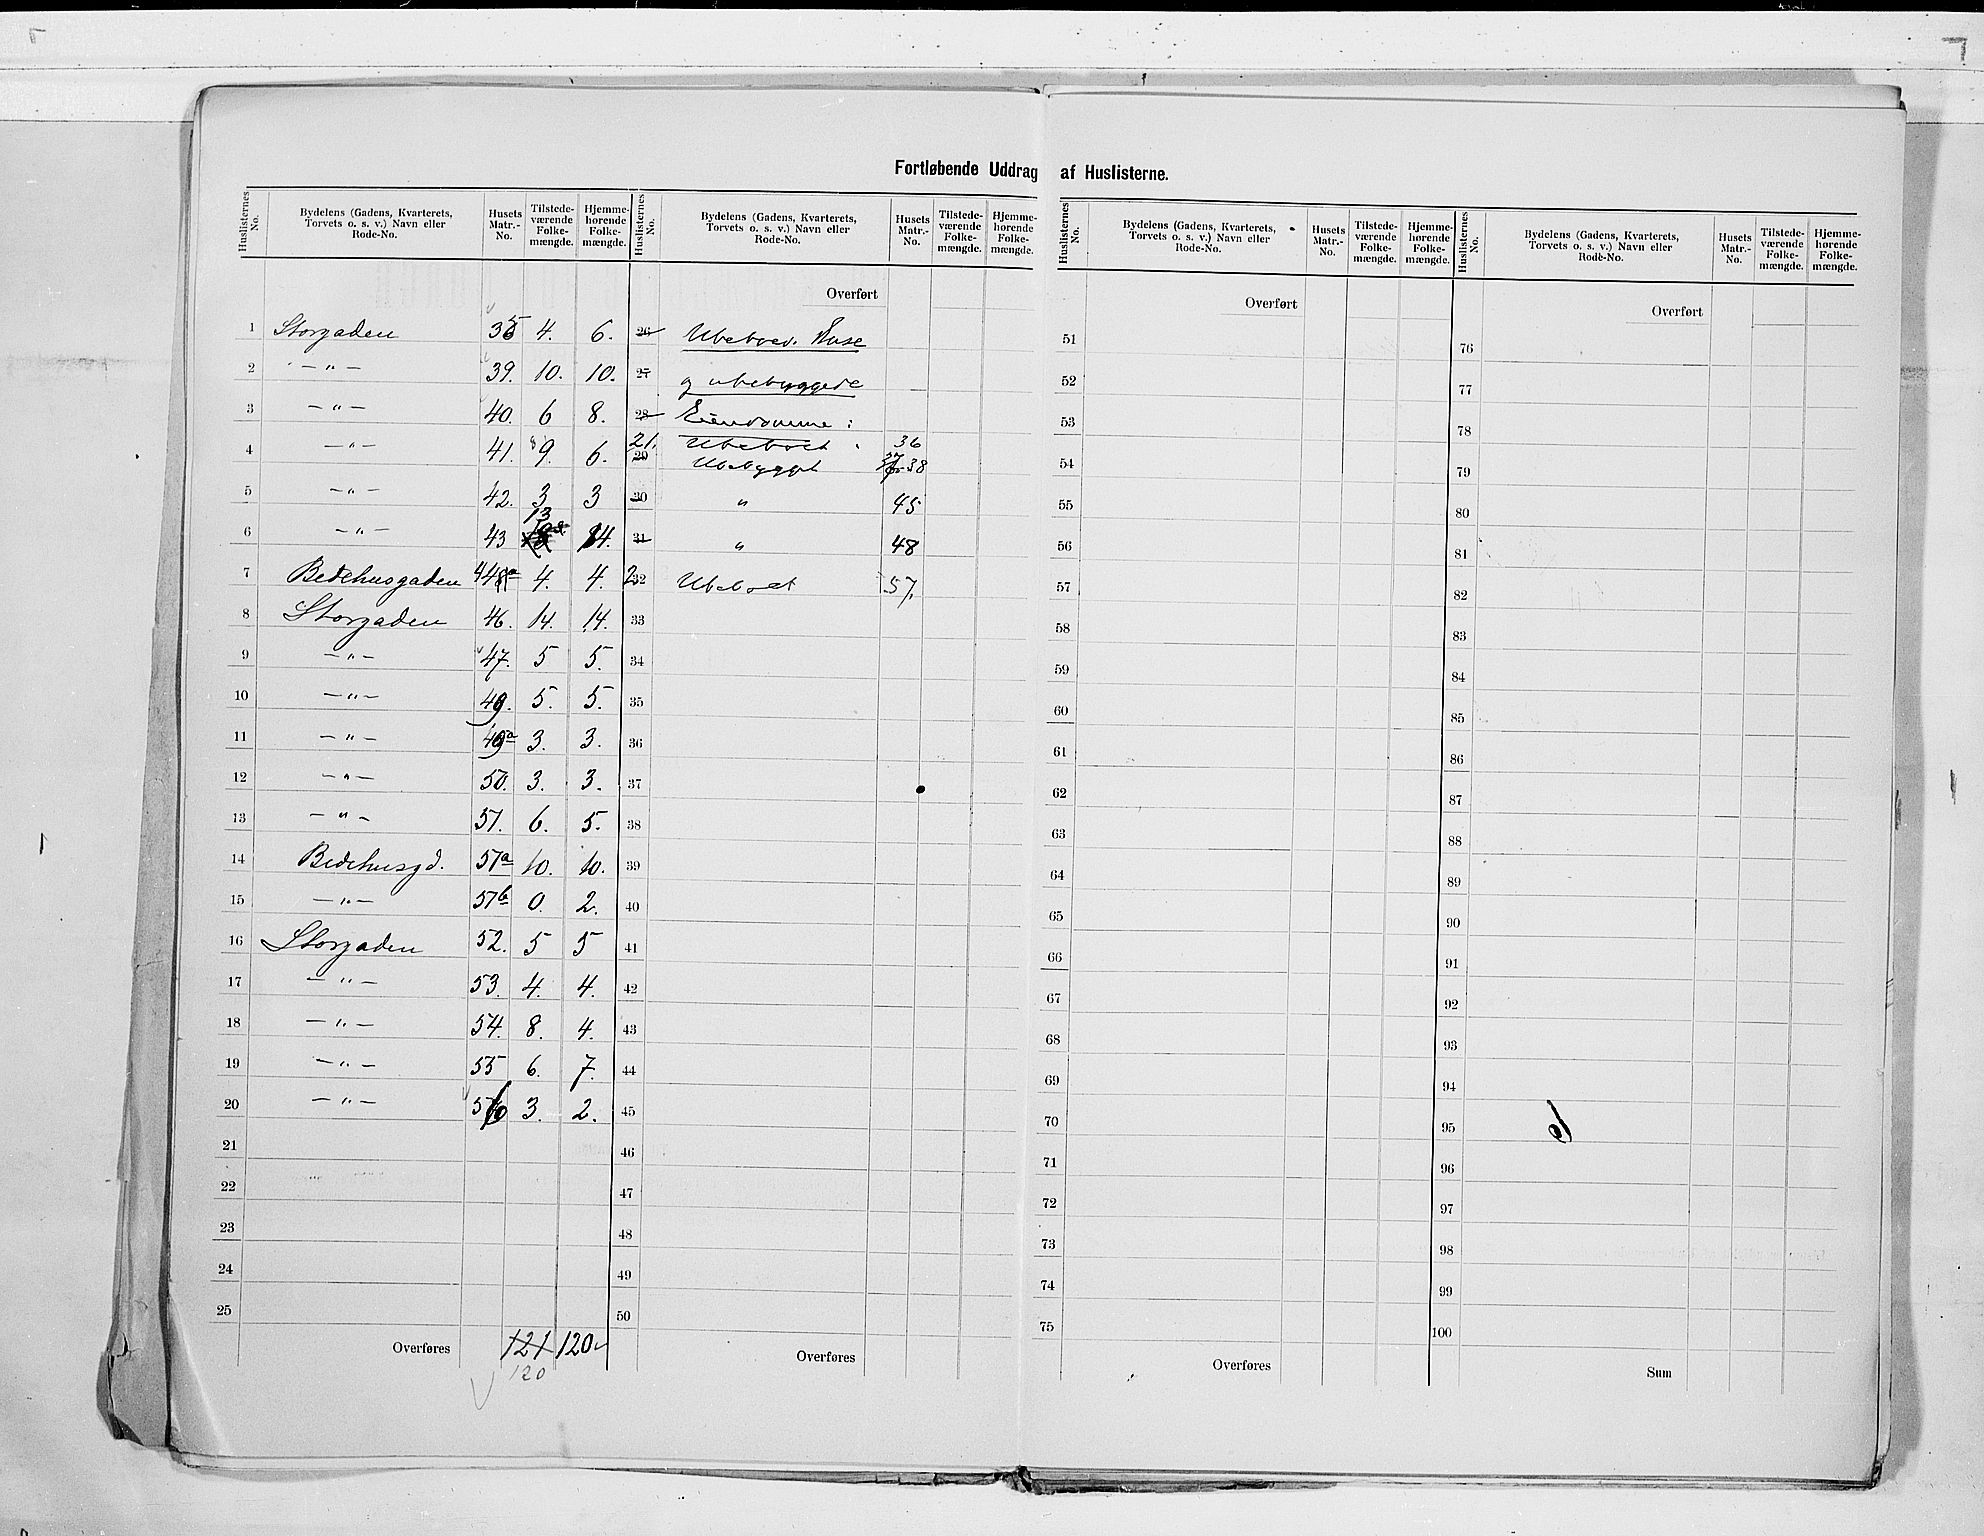 Fortløbende Uddrag af Huslisterne.
Huslisternes No. Bydelens (Gadens, Kvarterets, Torvets o. s. v.) Navn eller Rode-No. Husets Matr.-No. Tilstedeværende Folkemængde. Hjemmehørende Folkemængde.
1 Storgaden 35 4. 6.
2 -"- 39. 10. 10.
3 -"- 40. 6 8.
4 -"- 41. 9. 6.
5 -"- 42. 3 3
6 -"- 43 13 14.
7 Bedehusgaden 44a 4. 4.
8 Storgaden 46. 14. 14.
9 -"- 47. 5 5.
10 -"- 49. 5. 5.
11 -"- 49a 3. 3.
12 -"- 50. 3. 3.
13 -"- 51. 6. 5.
14 Bedehusgd. 51a 10. 10.
15 -"- 51b 0. 2.
16 Storgaden 52. 5 5
17 -"- 53. 4. 4.
18 -"- 54. 8. 4.
19 -"- 55 6. 7.
20 -"- 56 3. 2.
21
22
23
24
25
Overføres 121 120
120
Huslisternes No. Bydelens (Gadens, Kvarterets, Torvets o. s. v.) Navn eller Rode-No. Husets Matr.-No. Tilstedeværende Folkemængde. Hjemmehørende Folkemængde.
Overført
26 Ubeboed. Huse
27 og ubebyggede
28 Eiendomme :
21. Ubeboet 36
29 Ubebygget 37 38
30 " 45
31 " 48
32 Ubeboet 57.
33
34
35
36
37
38
39
40
41
42
43
44
45
46
47
48
49
50
Overføres
Huslisternes No. Bydelens (Gadens, Kvarterets, Torvets o. s. v.) Navn eller Rode-No. Husets Matr.-No. Tilstedeværende Folkemængde. Hjemmehørende Folkemængde.
Overført
51
52
53
54
55
56
57
58
59
60
61
62
63
64
65
66
67
68
69
70
71
72
73
74
75
Overføres
Huslisternes No. Bydelens (Gadens, Kvarterets, Torvets o. s. v.) Navn eller Rode-No. Husets Matr.-No. Tilstedeværende Folkemængde. Hjemmehørende Folkemængde.
Overført
76
77
78
79
80
81
82
83
84
85
86
87
88
89
90
91
92
93
94
95
96
97
98
99
100
Sum